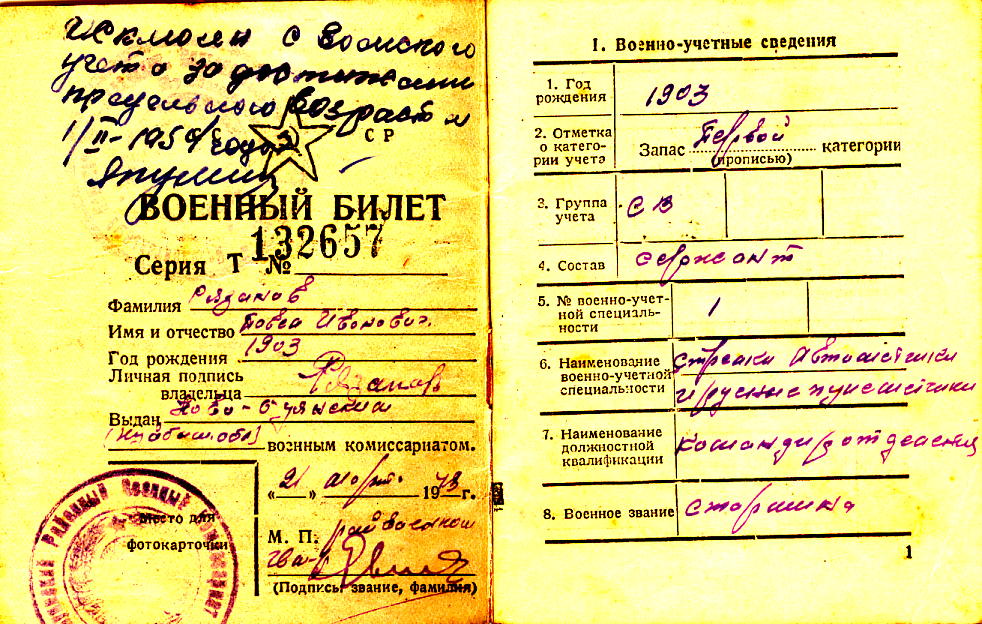 Исключен с воинского
учета за достижении
предельного возраста
1/II-1959 года
СР
ВОЕННЫЙ БИЛЕТ
Серия Т № 132657
Фамилия Рязанов
Имя и отчество Павел Иванович
Год рождения 1903
Личная подпись
владельца Рязанов
Выдан Ново-Буянский
(Куйбыш. обл) военным комиссариатом.
«21» 1948 г.
Место для
фотокарточки
М. П. райвоенком
(Подпись, звание, фамилия)
РАЙОННЫЙ ВОЕННЫЙ
I. Военно-учетные сведения
1. Год
рождения 1903
2. Отметка
о катего-
рии учета Запас Первой категории
(прописью)
3. Группа
учета СВ
4. Состав сержант
5. № военно-учет-
ной специаль-
ности 1
6. Наименование
военно-учетной
специальности стрелки автоматчики
и ручные пулеметчики
7. Наименование
должностной
квалификации командир отделения
8. Военное звание старшина
1